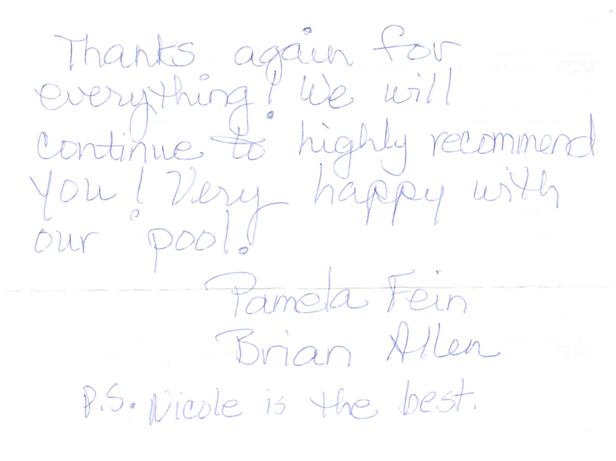 Thanks again for
everything! We will
continue to highly recommend
you! Very happy with
our pool.
Pamela Fein
Brian Allen
P.S. Nicole is the best.